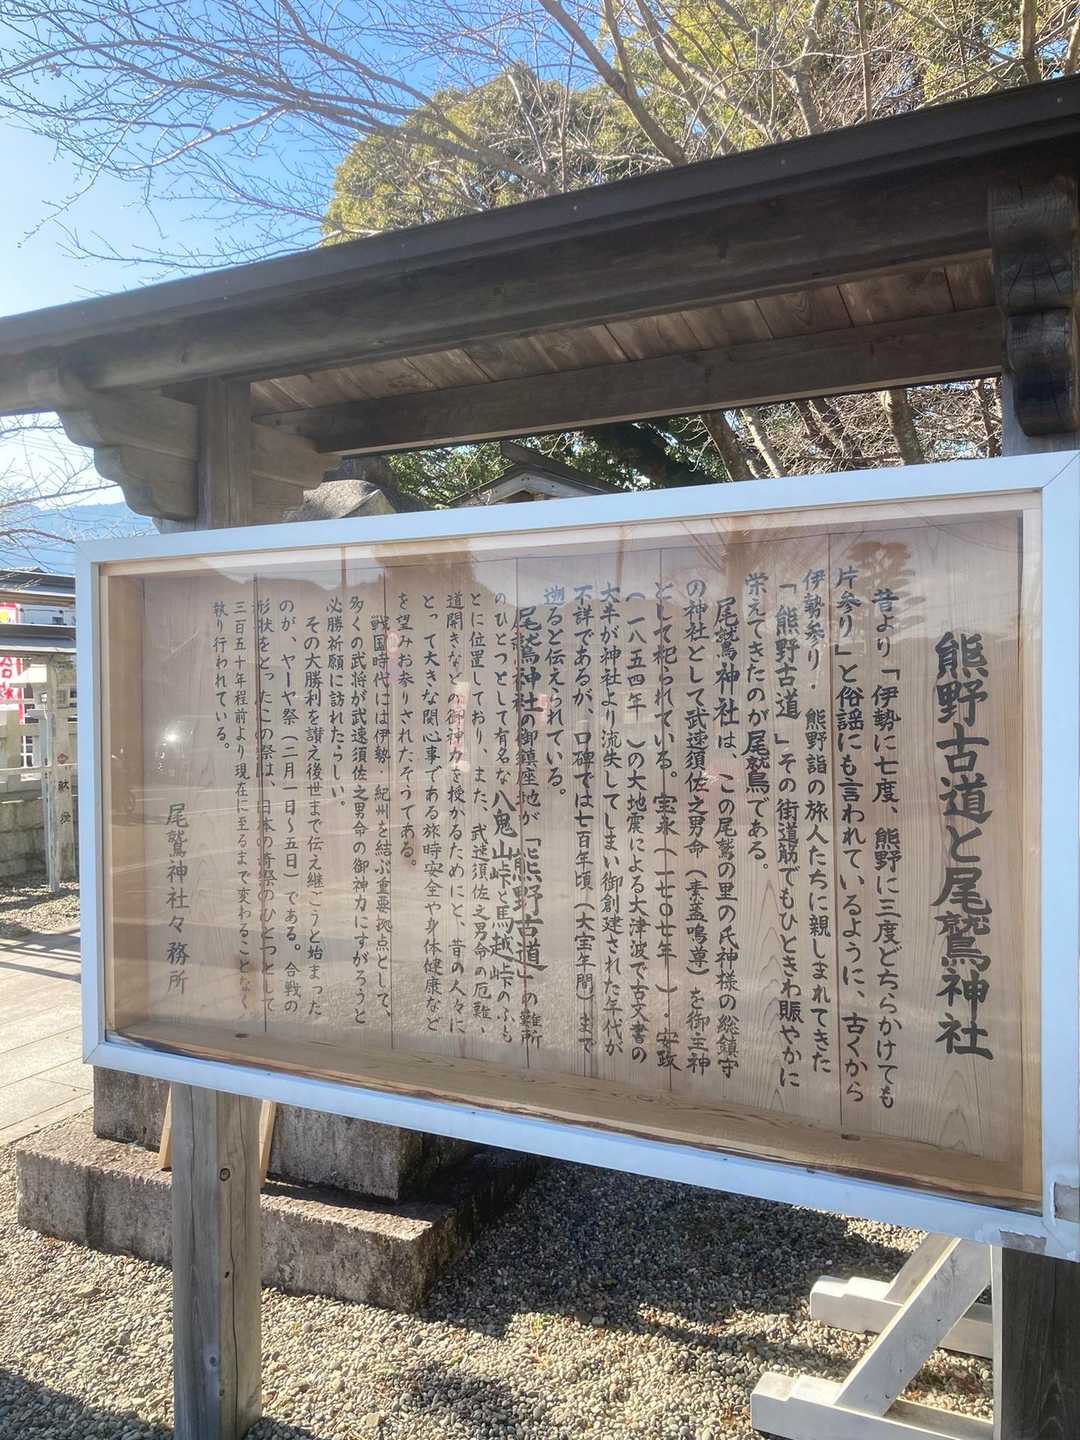 熊野古道と尾鷲神社
昔より「伊勢に七度、熊野に三度どちらかけても
片参り」と俗謡にも言われているように、古くから
伊勢参り・熊野詣の旅人たちに親しまれてきた
「熊野古道」その街道筋でもひときわ賑やかに
栄えてきたのが尾鷲である。
尾鷲神社は、この尾鷲の里の氏神様の総鎮守
の神社として武速須佐之男命（素盞鳴尊）を御主神
として祀られている。宝永（一七〇七年）・安政
（一八五四年）の大地震による大津波で古文書の
大半が神社より流失してしまい御創建された年代が
不詳であるが、口碑では七百年頃（大宝年間）まで
遡ると伝えられている。
尾鷲神社の御鎮座地が「熊野古道」の難所
のひとつとして有名な八鬼山峠と馬越峠のふも
とに位置しており、また、武速須佐之男命の厄難、
道開きなどの御神力を授かるためにと、昔の人々に
とって大きな関心事である旅時安全や身体健康など
を望みお参りされたそうである。
戦国時代には伊勢、紀州を結ぶ重要拠点として、
多くの武将が武速須佐之男命の御神力にすがろうと
必勝祈願に訪れたらしい。
その大勝利を讃え後世まで伝え継ごうと始まった
のが、ヤーヤ祭（二月一日～五日）である。合戦の
形状をとったこの祭は、日本の奇祭のひとつとして
三百五十年程前より現在に至るまで変わることなく、
執り行われている。
尾鷲神社々務所